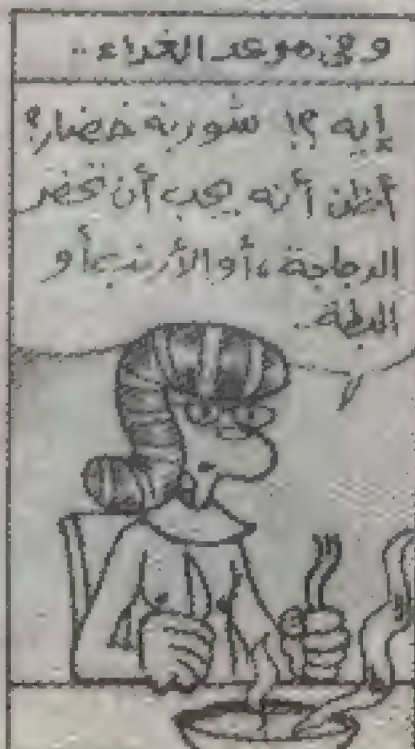 وفي موعد الغداء..
إيه؟! شوربة خضار؟
أظن أنه يجب أن تحضر
الدجاجة، أو الأرنب، أو
البطة..